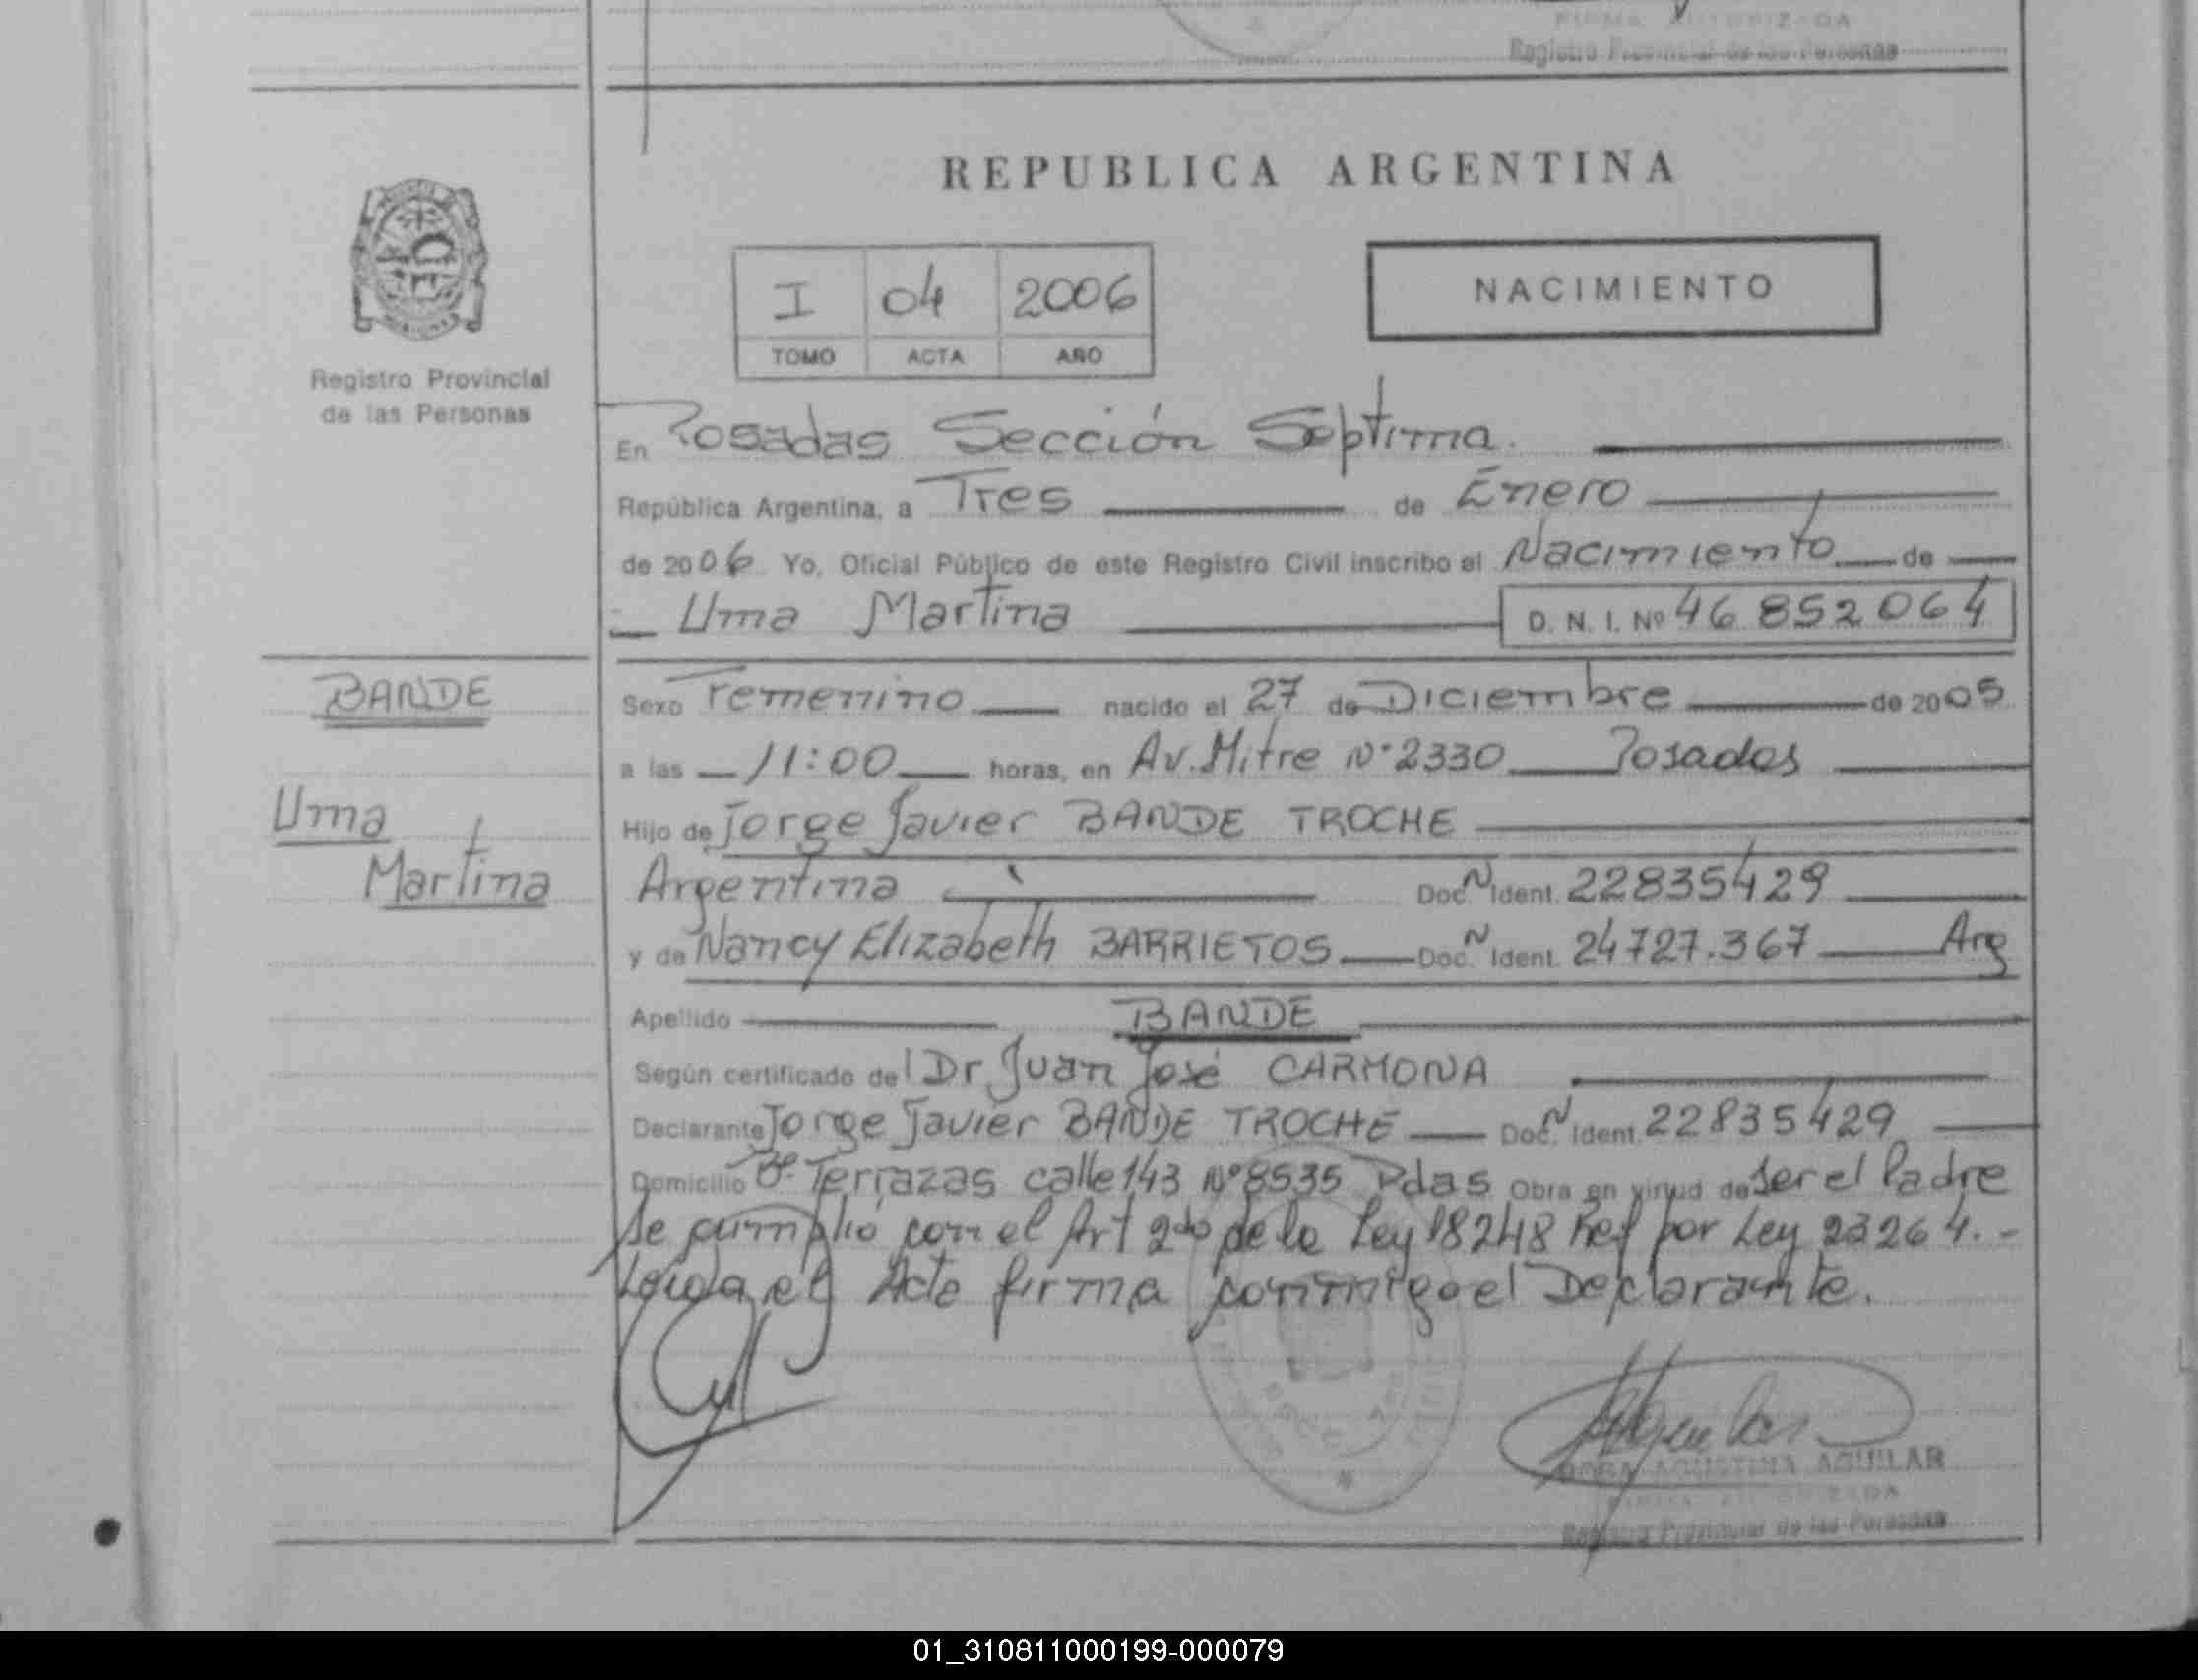 FIRMA AUTORIZADA
Registro Provincial de las Personas
REPUBLICA ARGENTINA
I 04 2006
TOMO ACTA AÑO
NACIMIENTO
Registro Provincial
de las Personas
En Posadas Sección Séptima.
República Argentina, a Tres de Enero
de 2006 Yo, Oficial Público de este Registro Civil inscribo el Nacimiento de
Uma Martina D. N. I. Nº 46 852 064
BANDE
Uma
Martina
Sexo Femenino nacido el 27 de Diciembre de 2005
a las 11:00 horas, en Av. Mitre Nº 2330 Posadas
Hijo de Jorge Javier BANDE TROCHE
Argentina Doc. N Ident. 22835429
y de Nancy Elizabeth BARRIETOS Doc. N Ident. 24727.367 Arg
Apellido BANDE
Según certificado del Dr. Juan José CARMONA
Declarante Jorge Javier BANDE TROCHE Doc. N Ident. 22835429
Domicilio Bº Terrazas calle 143 Nº 8535 Pdas Obra en virtud de ser el Padre
Se cumplió con el Art 2do de la Ley 18248 Ref por Ley 23264.-
Leída el Acta firma conmigo el Declarante.
AGUSTINA AGUILAR
FIRMA AUTORIZADA
Registro Provincial de las Personas
01_310811000199-000079